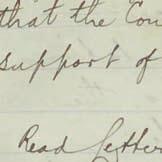 that the Cou
support of
Read letter